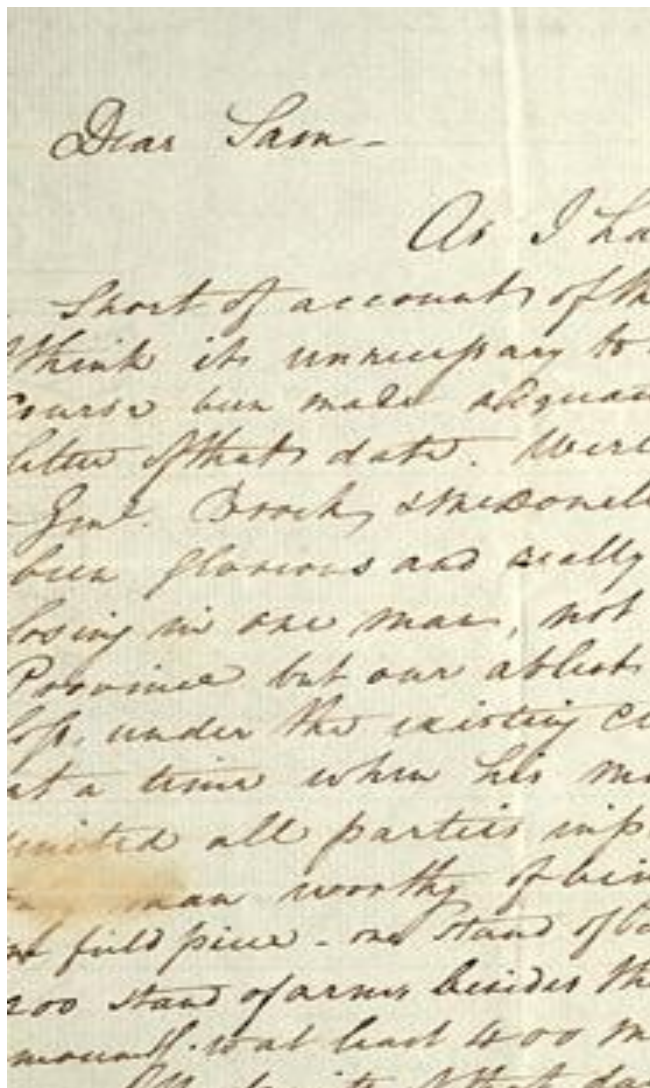 Dear Sam -
As I ha
Short of accounts of th
think its unnecessary to
Course been made acquai
letter of that date. Were
Genl. Brock, & McDonell
been glorious and really
losing in one man, not
Province but our ablest
loss, under the existing ci
at a time when his m
united all parties insp
man worthy of bein
field piece - one Stand of Co
200 Stand of arms besides th
at least 400 m
of that d